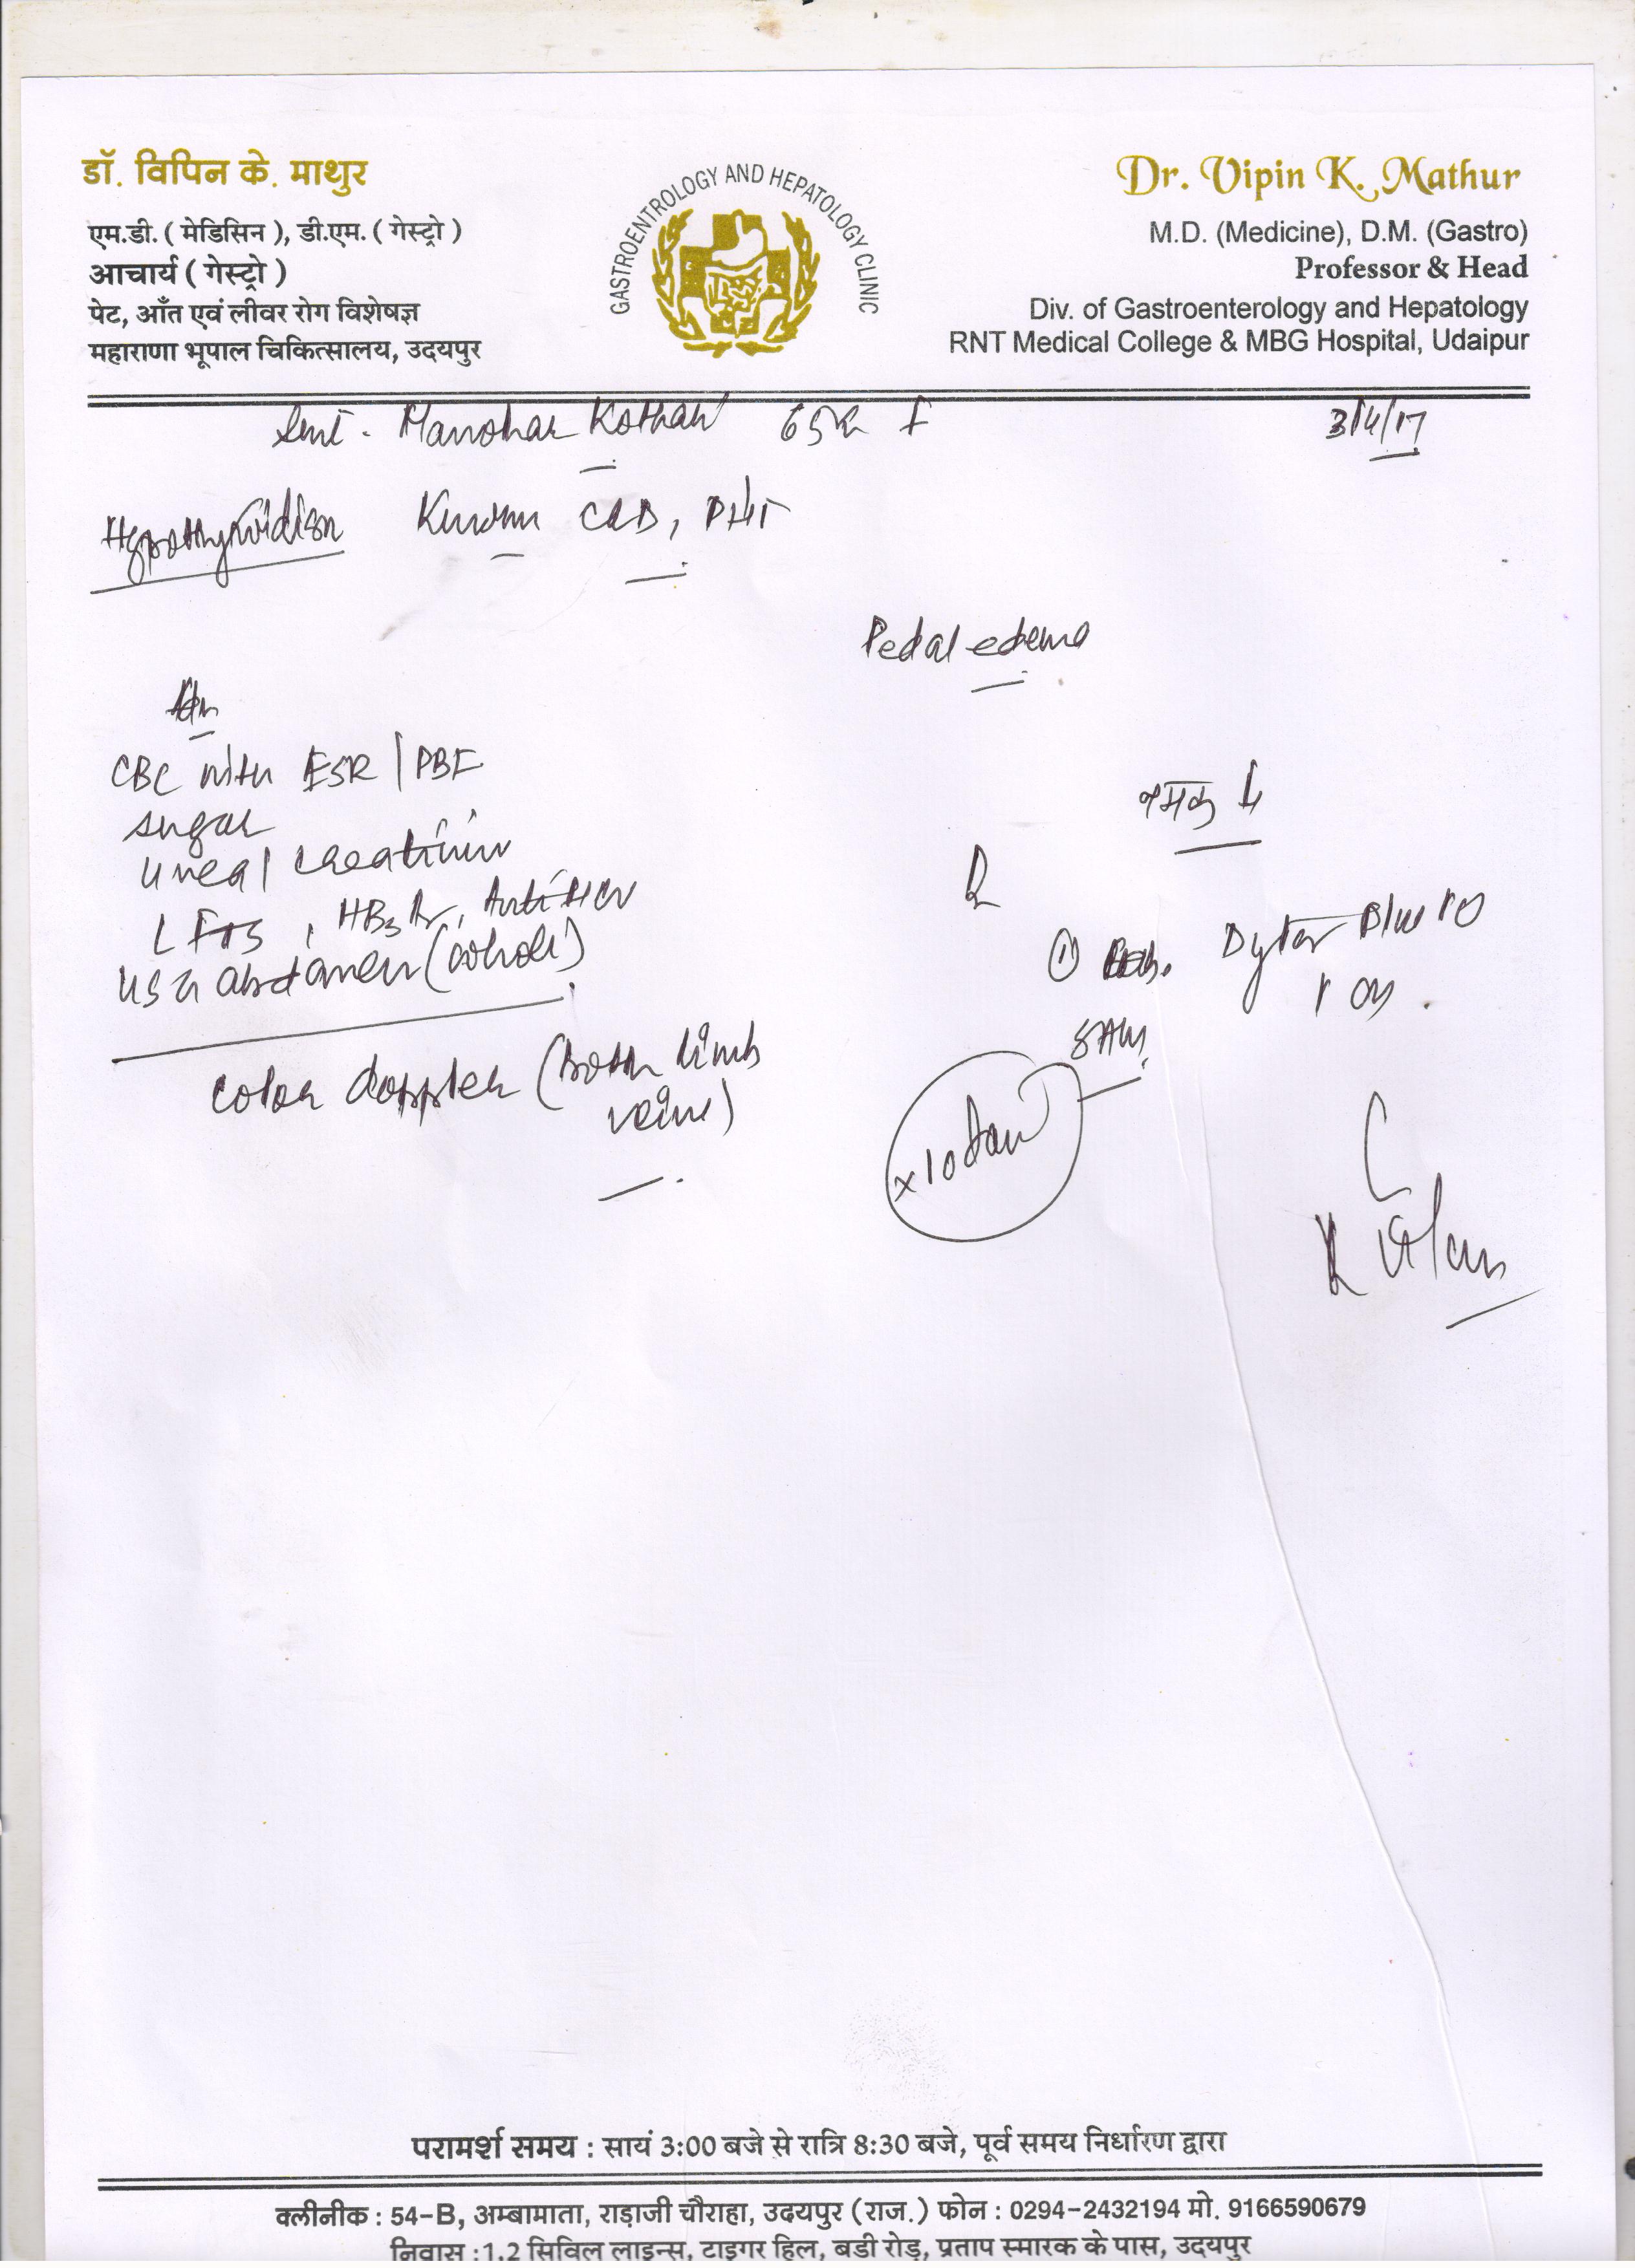 डॉ. विपिन के. माथुर
एम.डी. ( मेडिसिन ), डी.एम. ( गेस्ट्रो )
आचार्य ( गेस्ट्रो )
पेट, आँत एवं लीवर रोग विशेषज्ञ
महाराणा भूपाल चिकित्सालय, उदयपुर
GASTROENTROLOGY AND HEPATOLOGY CLINIC
Dr. Vipin K. Mathur
M.D. (Medicine), D.M. (Gastro)
Professor & Head
Div. of Gastroenterology and Hepatology
RNT Medical College & MBG Hospital, Udaipur
Smt. Manohar Kothari 65 F 3/4/17
Hypothyroidism Known CAD, PHT
Pedal edema
Adv
CBC with ESR | PBF
sugar
urea | creatinin
LFTs, HBsAg, Anti HCV
USG abdomen (whole)
color doppler (Both limb
veins)
नमक ↓
R
① Dytor Plus 10
1 OD
8AM.
x 10 days
परामर्श समय : सायं 3:00 बजे से रात्रि 8:30 बजे, पूर्व समय निर्धारण द्वारा
क्लीनीक : 54-B, अम्बामाता, राड़ाजी चौराहा, उदयपुर (राज.) फोन : 0294-2432194 मो. 9166590679
निवास :1,2 सिविल लाइन्स, टाइगर हिल, बडी रोड़, प्रताप स्मारक के पास, उदयपुर